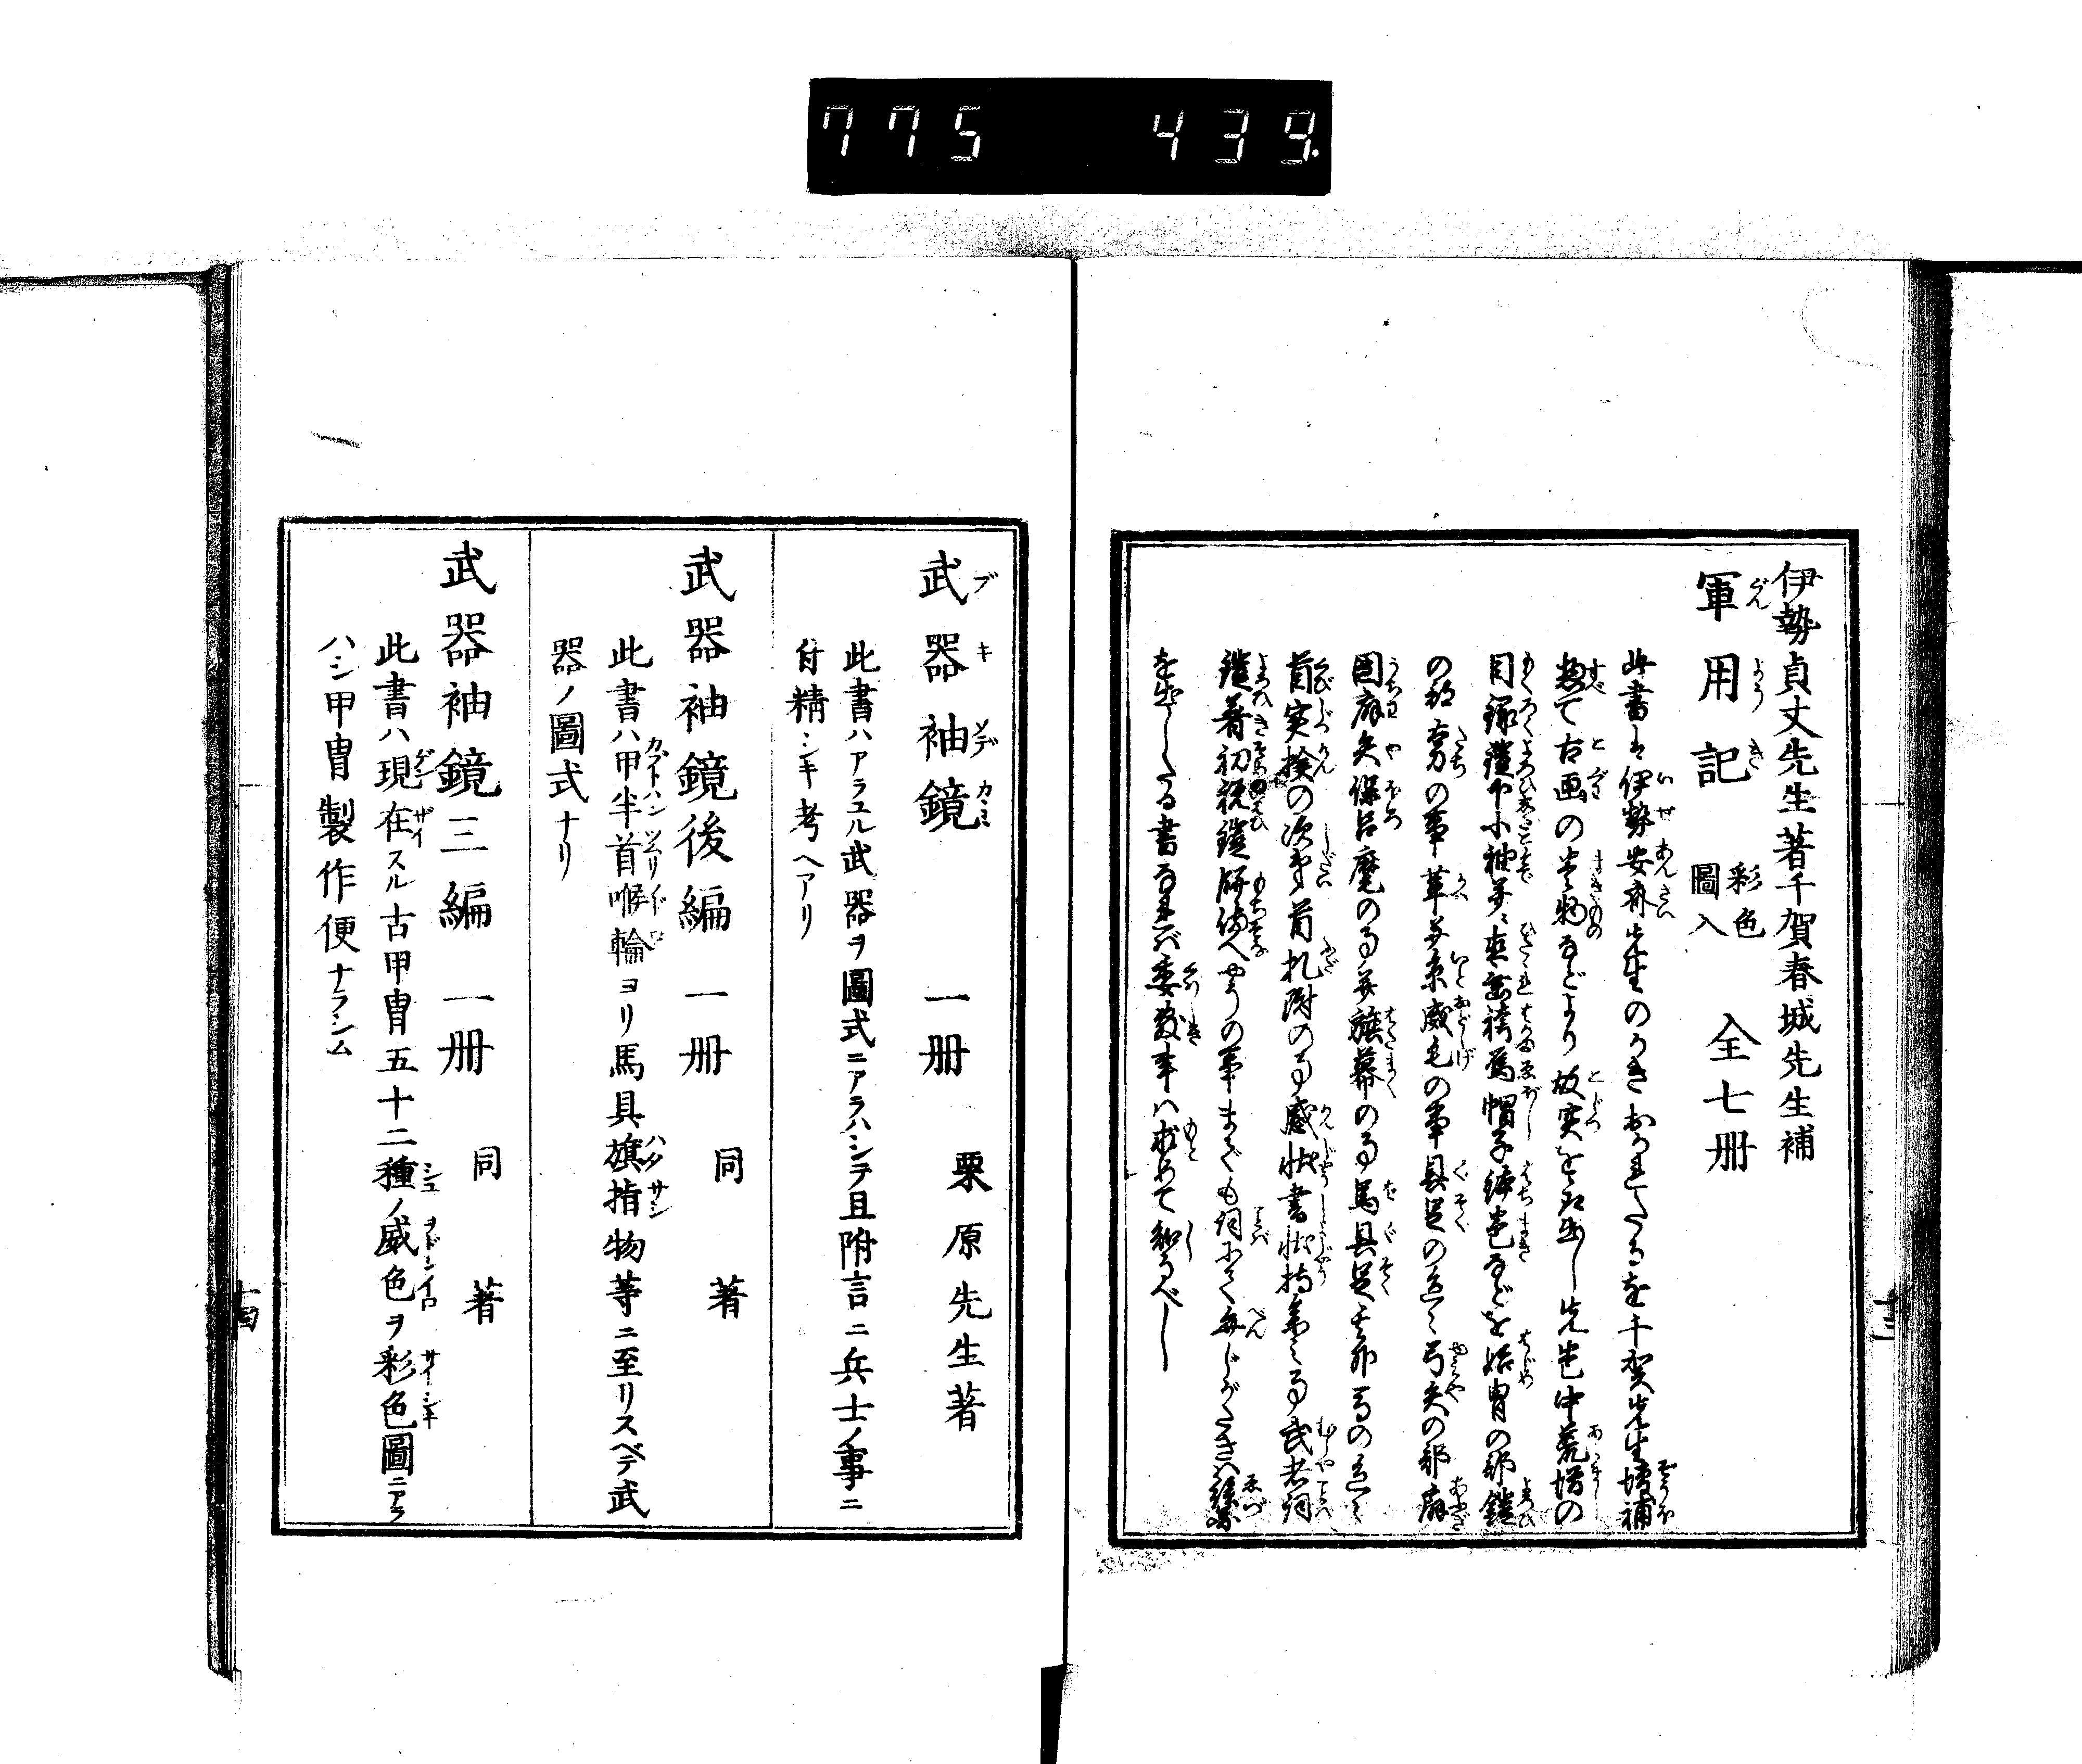 775 439.
伊勢貞丈先生著千賀春城先生補
軍用記 彩色圖入 全七冊
此書は伊勢安斎先生のかきおかれたるを千賀先生増補
惣て古画の巻物などより故実を
目録鎧巾小袖并直垂袴烏帽子鉢巻などを始冑の部鎧
の部太刀の事革并糸威毛の事具足の弓矢の部扇
団扇矢保呂麾の事并旗幕の事馬具足
首実検の次第首札附の事感状書状持参之事武者詞
鎧着初祝鎧餅備へやうの事まで
を出したる書なれバ委敷事ハ求めて知るべし
武器袖鏡 一冊 栗原先生著
此書ハアラユル武器ヲ圖式ニアラハシテ且附言ニ兵士ノ事ニ
付精シキ考ヘアリ
武器袖鏡後編 一冊 同著
此書ハ甲半首喉輪ヨリ馬具旗指物等ニ至リスベテ武
器ノ圖式ナリ
武器袖鏡三編 一冊 同著
此書ハ現在スル古甲冑五十二種ノ威色ヲ彩色圖ニアラ
ハシ甲冑製作便ナラシム